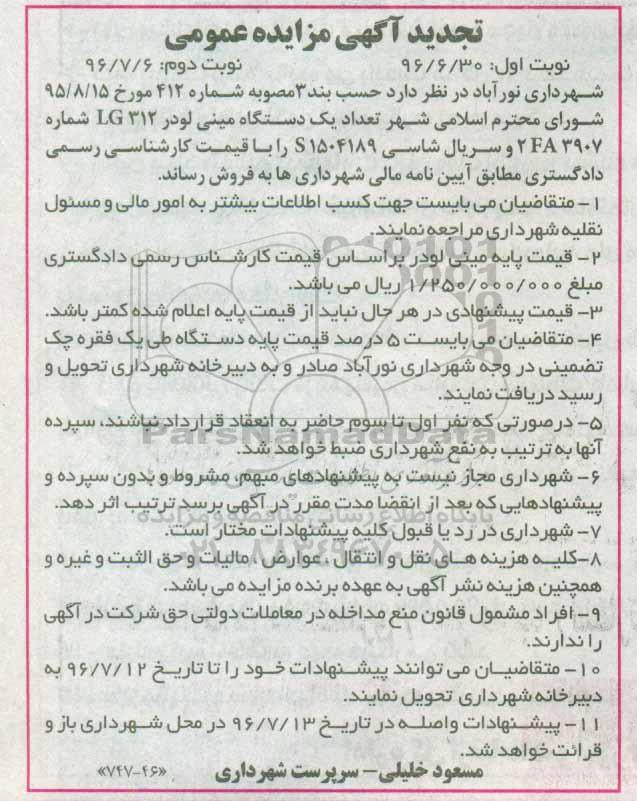 تجدید آگهی مزایده عمومی
نوبت اول: ۹۶/۶/۳۰ نوبت دوم: ۹۶/۷/۶
شهرداری نورآباد در نظر دارد حسب بند۳مصوبه شماره ۴۱۲ مورخ ۹۵/۸/۱۵
شورای محترم اسلامی شهر تعداد یک دستگاه مینی لودر LG ۳۱۲ شماره
۲FA ۳۹۰۷ و سریال شاسی S۱۵۰۴۱۸۹ را با قیمت کارشناسی رسمی
دادگستری مطابق آیین نامه مالی شهرداری ها به فروش رساند.
۱- متقاضیان می بایست جهت کسب اطلاعات بیشتر به امور مالی و مسئول
نقلیه شهرداری مراجعه نمایند.
۲- قیمت پایه مینی لودر براساس قیمت کارشناس رسمی دادگستری
مبلغ ۱/۲۵۰/۰۰۰/۰۰۰ ریال می باشد.
۳- قیمت پیشنهادی در هر حال نباید از قیمت پایه اعلام شده کمتر باشد.
۴- متقاضیان می بایست ۵ درصد قیمت پایه دستگاه طی یک فقره چک
تضمینی در وجه شهرداری نورآباد صادر و به دبیرخانه شهرداری تحویل و
رسید دریافت نمایند.
۵- درصورتی که نفر اول تا سوم حاضر به انعقاد قرارداد نباشند، سپرده
آنها به ترتیب به نفع شهرداری ضبط خواهد شد.
ParsNamadData
۶- شهرداری مجاز نیست به پیشنهادهای مبهم، مشروط و بدون سپرده و
پیشنهادهایی که بعد از انقضا مدت مقرر در آگهی برسد ترتیب اثر دهد.
پایگاه اطلاع رسانی مناقصه و مزایده
۷- شهرداری در رد یا قبول کلیه پیشنهادات مختار است.
۸-کلیه هزینه های نقل و انتقال ، عوارض ، مالیات وحق الثبت و غیره و
همچنین هزینه نشر آگهی به عهده برنده مزایده می باشد.
۹- افراد مشمول قانون منع مداخله در معاملات دولتی حق شرکت در آگهی
را ندارند.
۱۰- متقاضیان می توانند پیشنهادات خود را تا تاریخ ۹۶/۷/۱۲ به
دبیرخانه شهرداری تحویل نمایند.
۱۱- پیشنهادات واصله در تاریخ ۹۶/۷/۱۳ در محل شهرداری باز و
قرائت خواهد شد.
مسعود خلیلی- سرپرست شهرداری «۷۴۷-۴۶»